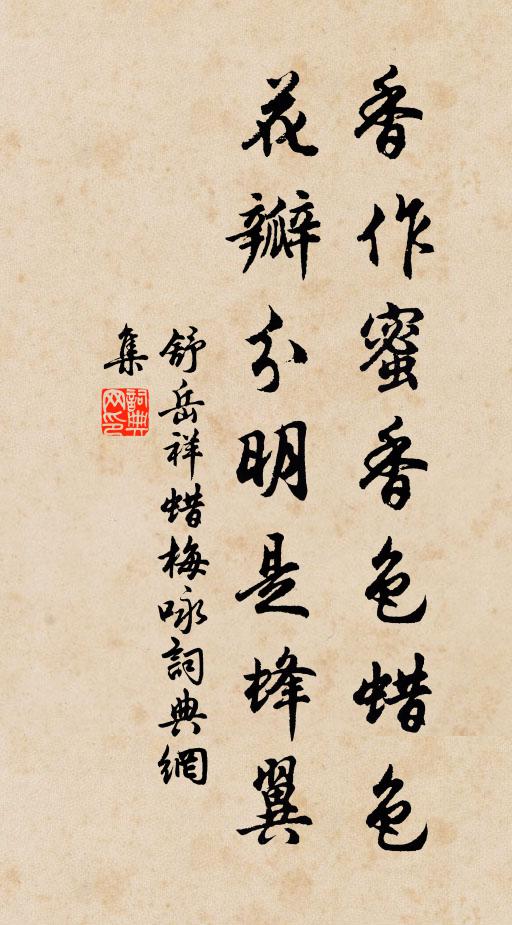 香作蜜香色蜡色
花瓣分明是蜂翼
舒岳祥蜡梅咏詞典網
集
詞典网印